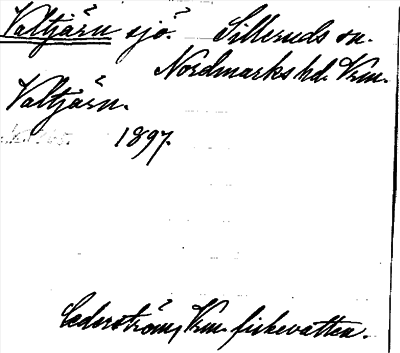 Valtjärn sjö. Silleruds sn.
Nordmarks hd. Vrm.
Valtjärn.
1897.
Cederström, Vrm. fiskevatten.